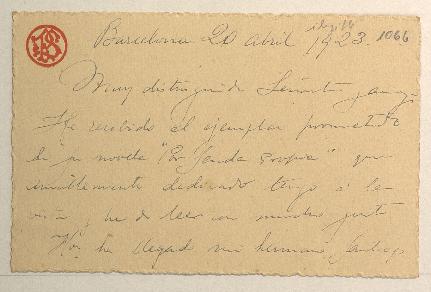 Barcelona 20 abril 1923. 1066
Muy distinguida Señorita y amiga
He recibido el ejemplar prometido
de su novela "Por Senda propia" que
amablemente dedicado tengo á la
vista y he de leer con mucho gusto
Hoy ha llegado mi hermano Santiago